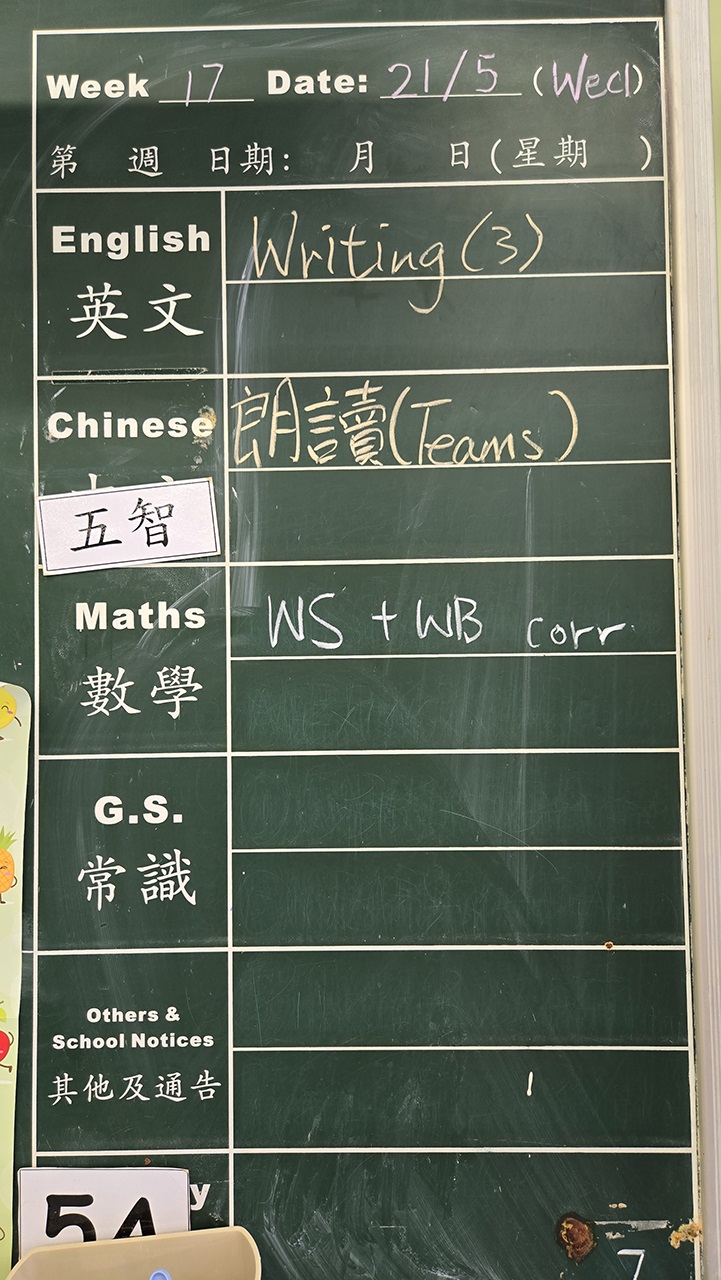 Week 17 Date: 21/5 (Wed)
第 週 日期: 月 日(星期 )
English
英文
Writing(3)
Chinese
朗讀(Teams)
五智
Maths
數學
WS + WB corr.
G.S.
常識
Others &
School Notices
其他及通告
1
y
7